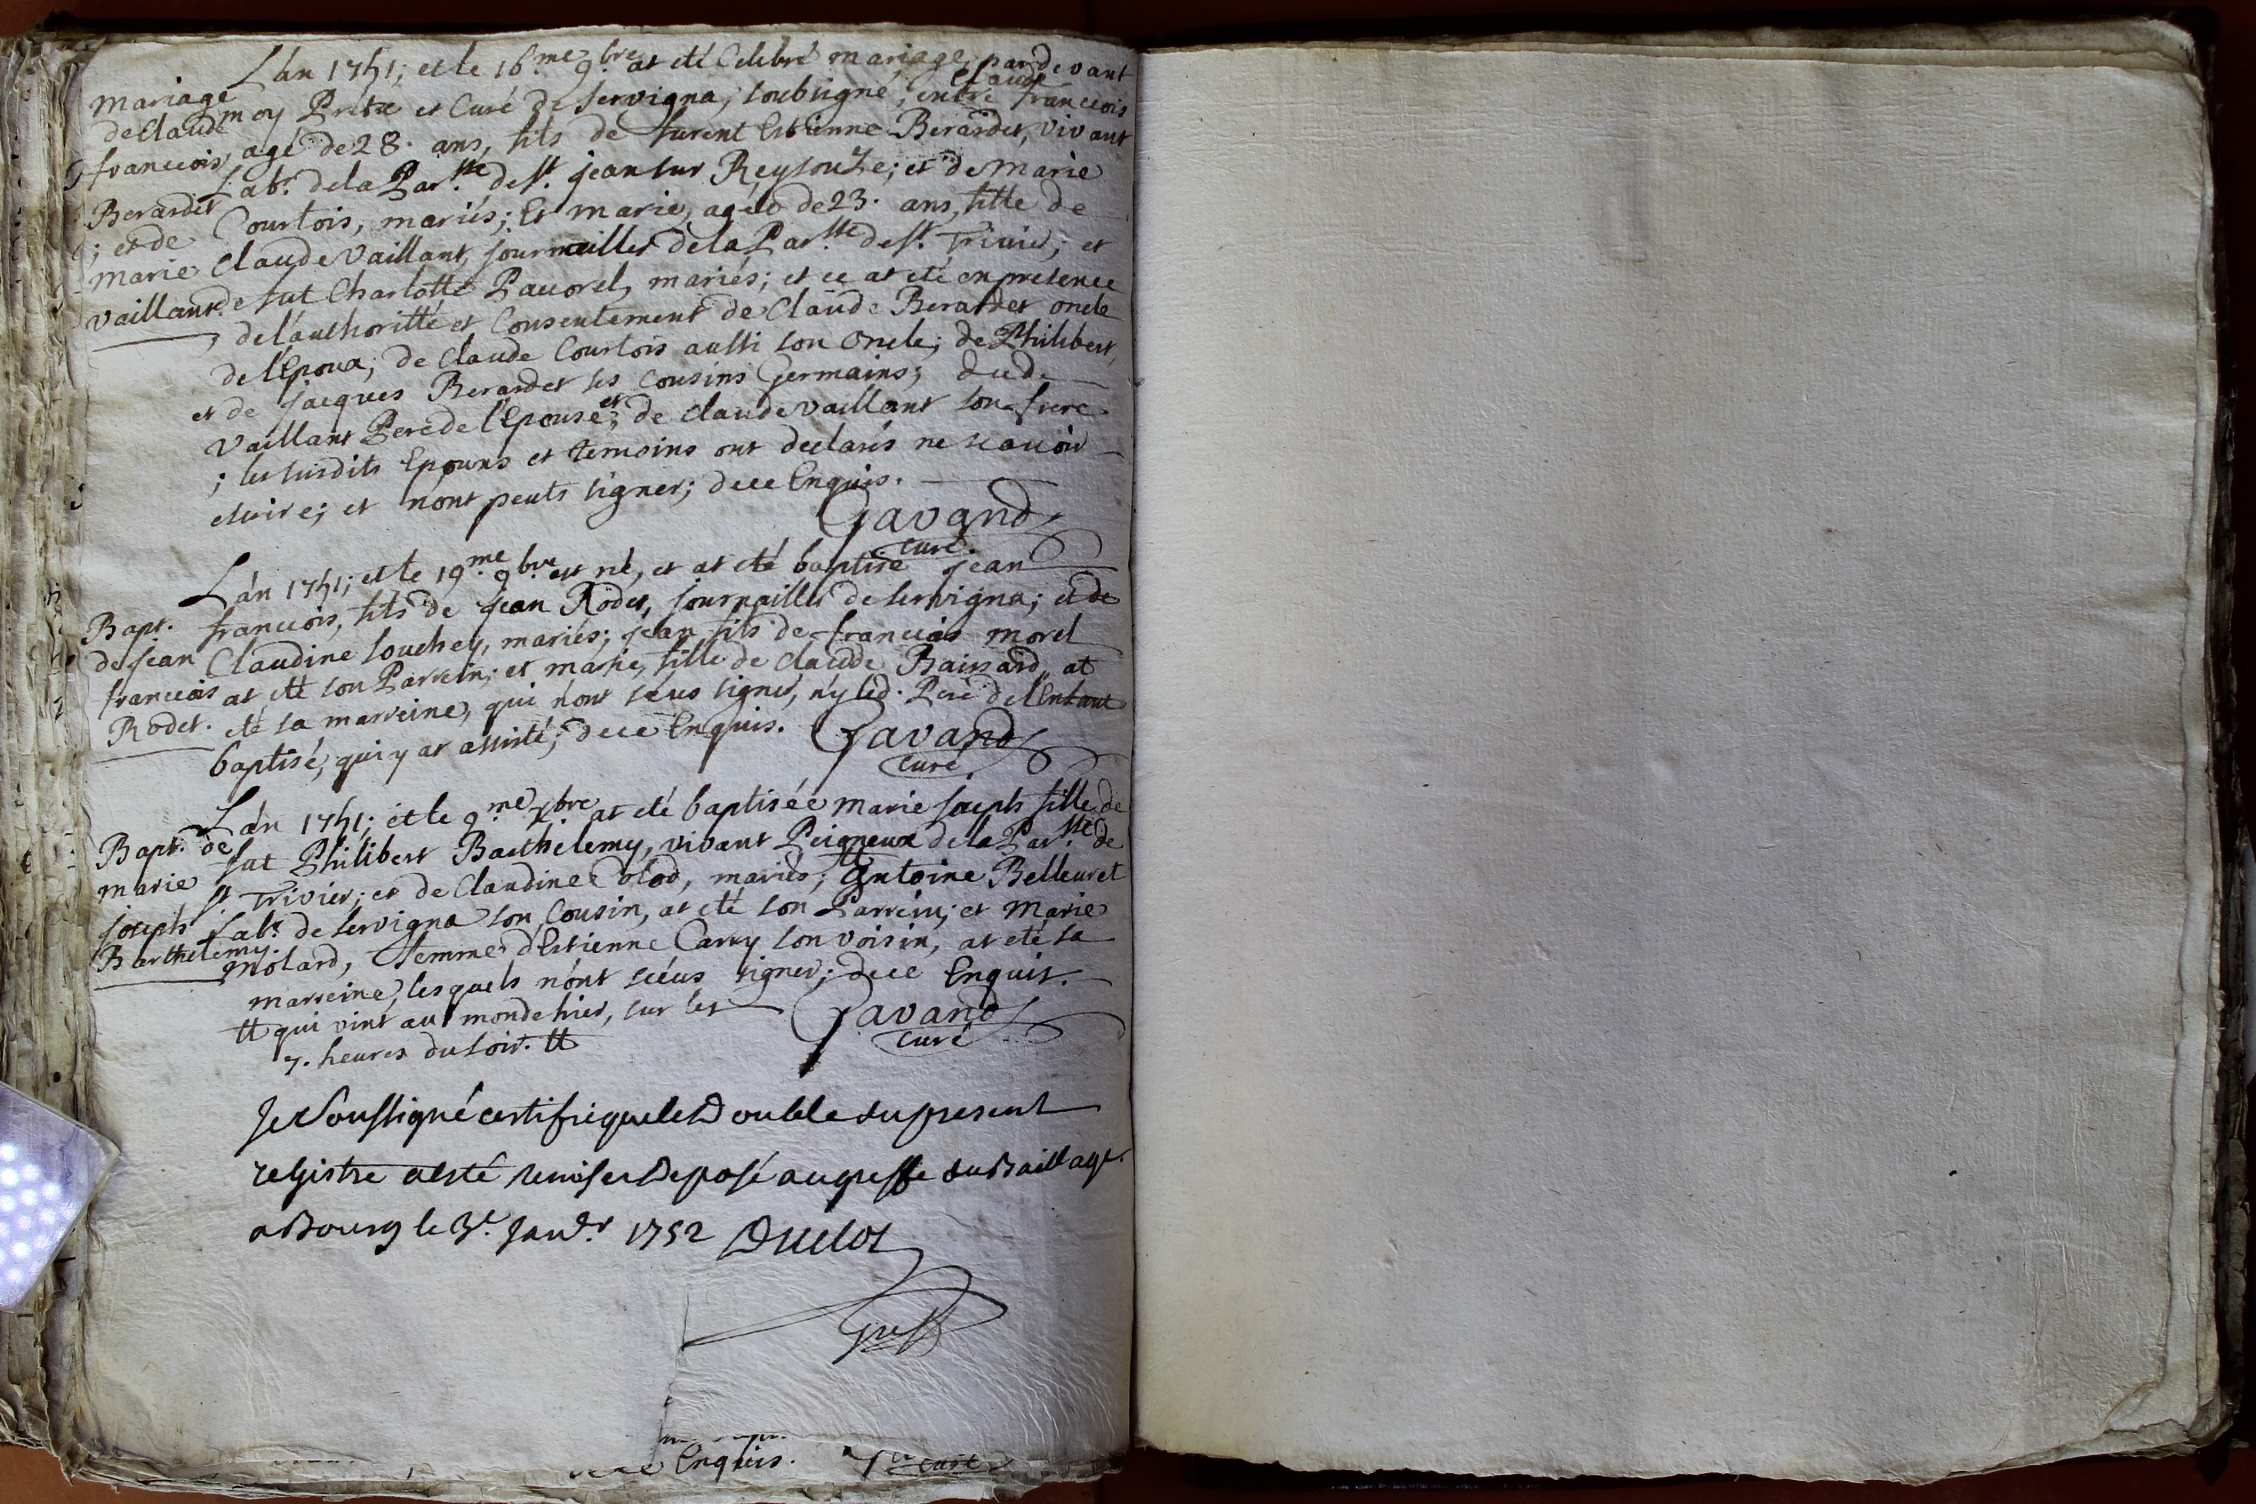 Mariage
de Claude
francois
Berardet
; et de
marie
vaillant.
L'án 1751; et le 16.me 9.bre at eté Celebré mariage, par devant
moy Prétre et Curé de Servigna, soubsigné, entre Claude francois
agé de 28. ans, fils de furent Estienne Berardet, vivant
Lab.r de la Par.sse de S.t jean sur Reysouze; et de Marie
Courtois, mariés; Et marie, ageé de 23. ans, fille de
Claude Vaillant, journaillier de la Par.sse de S.t Trivier; et
de fut Charlotte Pauorel, mariés; et ce at eté en presence
, de l'authoritté et Consentement de Claude Berardet oncle
de l'Epoux; de Claude Courtois aussi son Oncle; de Philibert,
et de jacques Berardet ses Cousins Germains; dud.
Vaillant Pere de l'Epouse; et de Claude Vaillant son frere
; les susdits Epouxs et temoins ont declarés ne scavoir
escrire; et n'ont peuts signer; de ce Enquis.
Gavand
Curé.
Bapt.
de jean
francois
Rodet.
L'án 1751; et le 19.me 9.bre est né, et at eté baptisé jean
francois, fils de jean Rodet, journaillier de Servigna; et de
Claudine Souchey, mariés; jean fils de francois morel
at eté son Parrein; et marie, fille de Claude Bainard, at
eté sa marreine, qui n'ont sceus signer, n'y led. Peré de l'Enfant
baptisé, qui y at assisté; de ce Enquis.
Gavand
Curé
Bapt. de
marie
joseph
Barthelemy.
L'án 1751; et le 9.me X.bre at eté baptisée marie joseph fille de
fut Philibert Barthelemy, vivant Peigneux de la Par.sse de
S.t Trivier; et de Claudine Colod, mariés; # Antoine Belleuret
Lab.r de Servigna son Cousin, at eté son Parrein; et Marie
molard, femme d'Estienne Carry son voisin, at eté sa
marreine, lesquels n'ont scéus signer; de ce Enquis.
# qui vint au monde hier, sur les
7. heures du soir. #
Gavand
Curé
Je Soussigné certifie que le Double du present
registre a esté remis et Deposé au greffe du Baillage
a Bourg le 3.e Janv.r 1752 Duclos
Greff
Enquis. curé